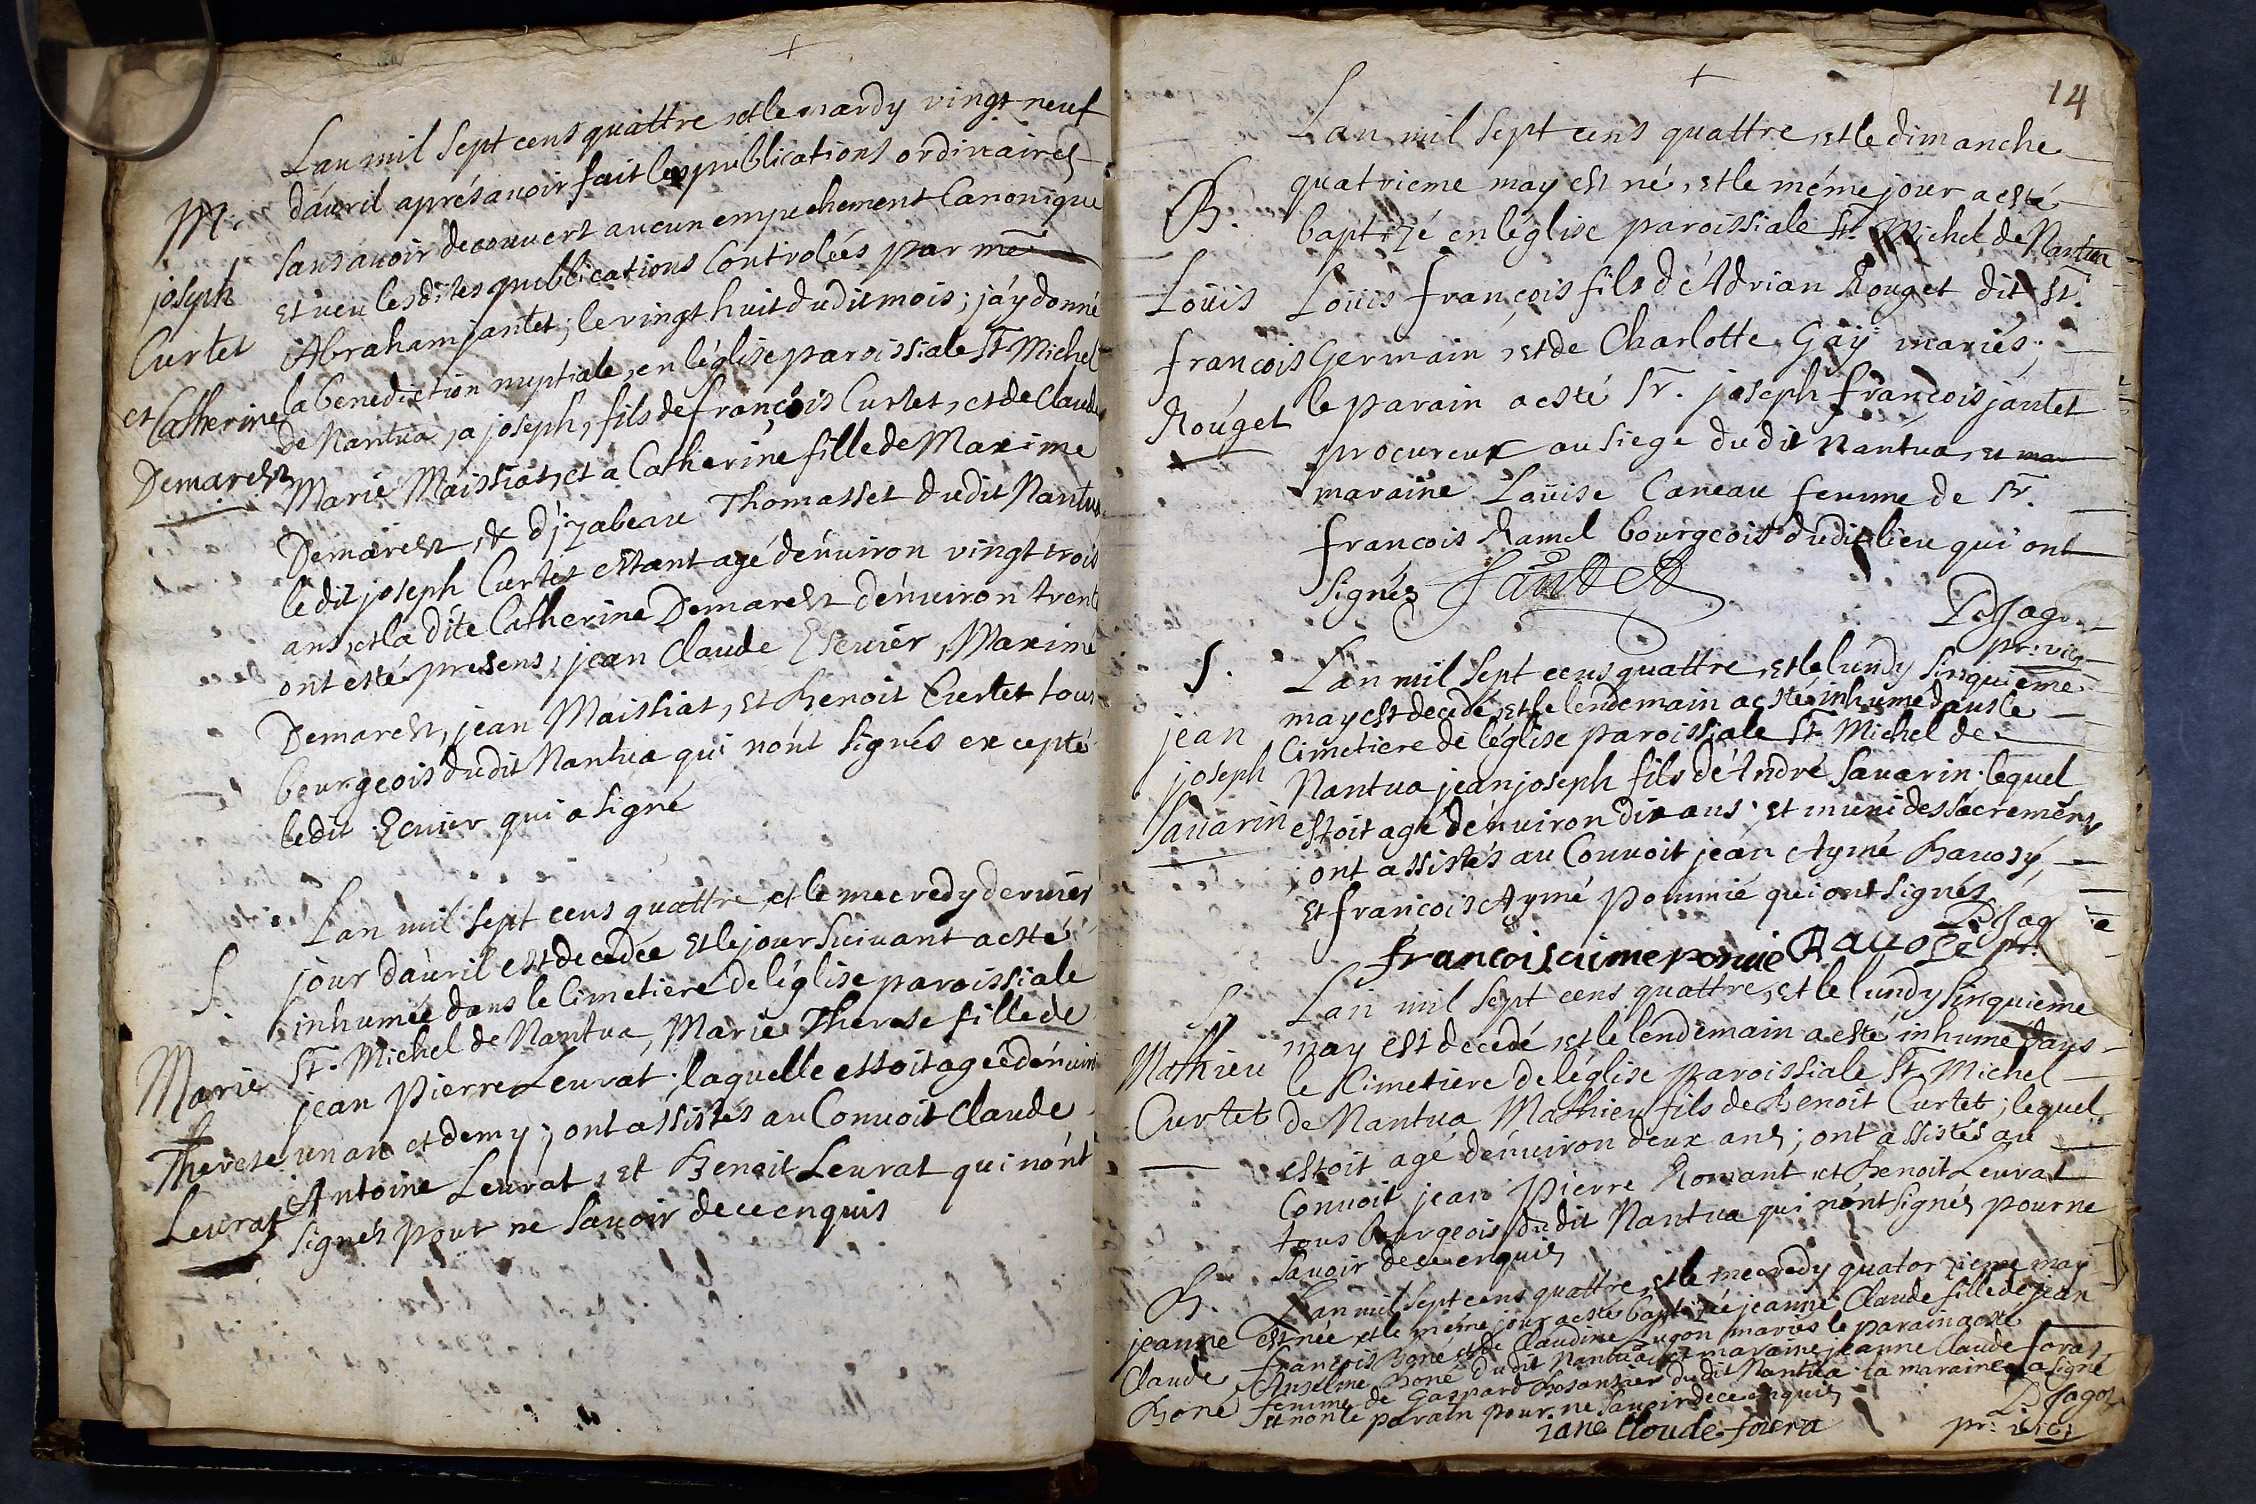 Lan mil sept cens quattre, et le mardy vingt neuf
dáuril aprés auoir fait les publications ordinaires
sans auoir decouuert aucun empechement Canonique
et ueu les dites publications Controleés par me
Abraham jantet; le vingt huit du dit mois; j'áy donné
la benediction nuptiale, en léglise paroissiale St. Michel
de Nantua, a joseph, fils de françois Curtet, et de Claude
Marie Maissiat, et a Catherine fille de Maxime
Demarest, & d'jzabeau Thomasset du dit Nantua
le dit joseph Curtet estant agé dénuiron vingt trois
ans, et la dite Catherine Demarest dénuiron trente
ont esté presens, jean Claude Ecuier, Maxime
Demarest, jean Maissiat, et Benoit Curtet tous
bourgeois du dit Nantua qui nónt signés excepté
ledit Ecuier qui a signé
M.
joseph
Curtet
et Catherine
Demarest
Lan mil sept cens quattre, et le mecredy dernier
jour dáuril est decedée et le jour suiuant a esté
inhumée dans le Cimetiere de léglise paroissiale
St. Michel de Nantua, Marie Therese fille de
jean Pierre Leurat; laquelle estoit ageé dénuiron
un an et demy; ont assistés au Conuoit Claude
Antoine Leurat, et Benoit Leurat qui nónt
signés pour ne sauoir de ce enquis
S.
Marie
Therese
Leurat
14
Lan mil sept cens quattre, et le dimanche
quatrieme may est né, et le méme jour a esté
baptizé en léglise paroissiale St. Michel de Nantua
Loüis françois fils d'Adrian Rouget dit St.
Germain, et de Charlotte Gaÿ mariés;
le parain a esté Sr. joseph françois jantet
procureur au siege du dit Nantua, et
maraine Loüise Caneau femme de Sr.
françois Ramel bourgeois du dit lieu qui ont
signés Jantet
P. Jagot
pr: vic.
B.
Loüis
françois
Rouget
Lan mil sept cens quattre, et le lundy sinquieme
may est decedé, et le lendemain a esté inhumé dans le
Cimetiere de léglise paroissiale St. Michel de
Nantua jean joseph fils d'André Sauarin; lequel
estoit agé dénuiron dix ans; et muni des sacremens
ont assistés au Conuoit jean Aymé Rauosÿ,
et françois Aymé pommié qui ont signés
P. Jag
francois aime pomie Rauose pr.
S.
jean
joseph
Sauarin
Lan mil sept cens quattre, et le lundy sinquieme
may est decedé, et le lendemain a esté inhumé dans
le Cimetiere de léglise paroissiale St. Michel
de Nantua Mathieu fils de Benoit Curtet; lequel
estoit agé dénuiron deux ans; ont assistés au
Conuoit jean Pierre Romant et Benoit Leurat
tous bourgeois du dit Nantua qui nónt signés pour ne
sauoir de ce enquis
S.
Mathieu
Curtet
Lan mil sept cens quattre, et le mecredy quatorzieme may
est née et le méme jour a esté baptizée jeanne Claude fille de jean
françois Boné et de Claudine Lugon mariés le parain a esté
Anselme Boné du dit Nantua et maraine jeanne Claude foras
femme de Gaspard Rosansier du dit Nantua la maraine a signé
et non le parain pour ne sauoir de ce enquis
P. Jagot
iane cloude foura
pr: vic:
B.
jeanne
Claude
Boné